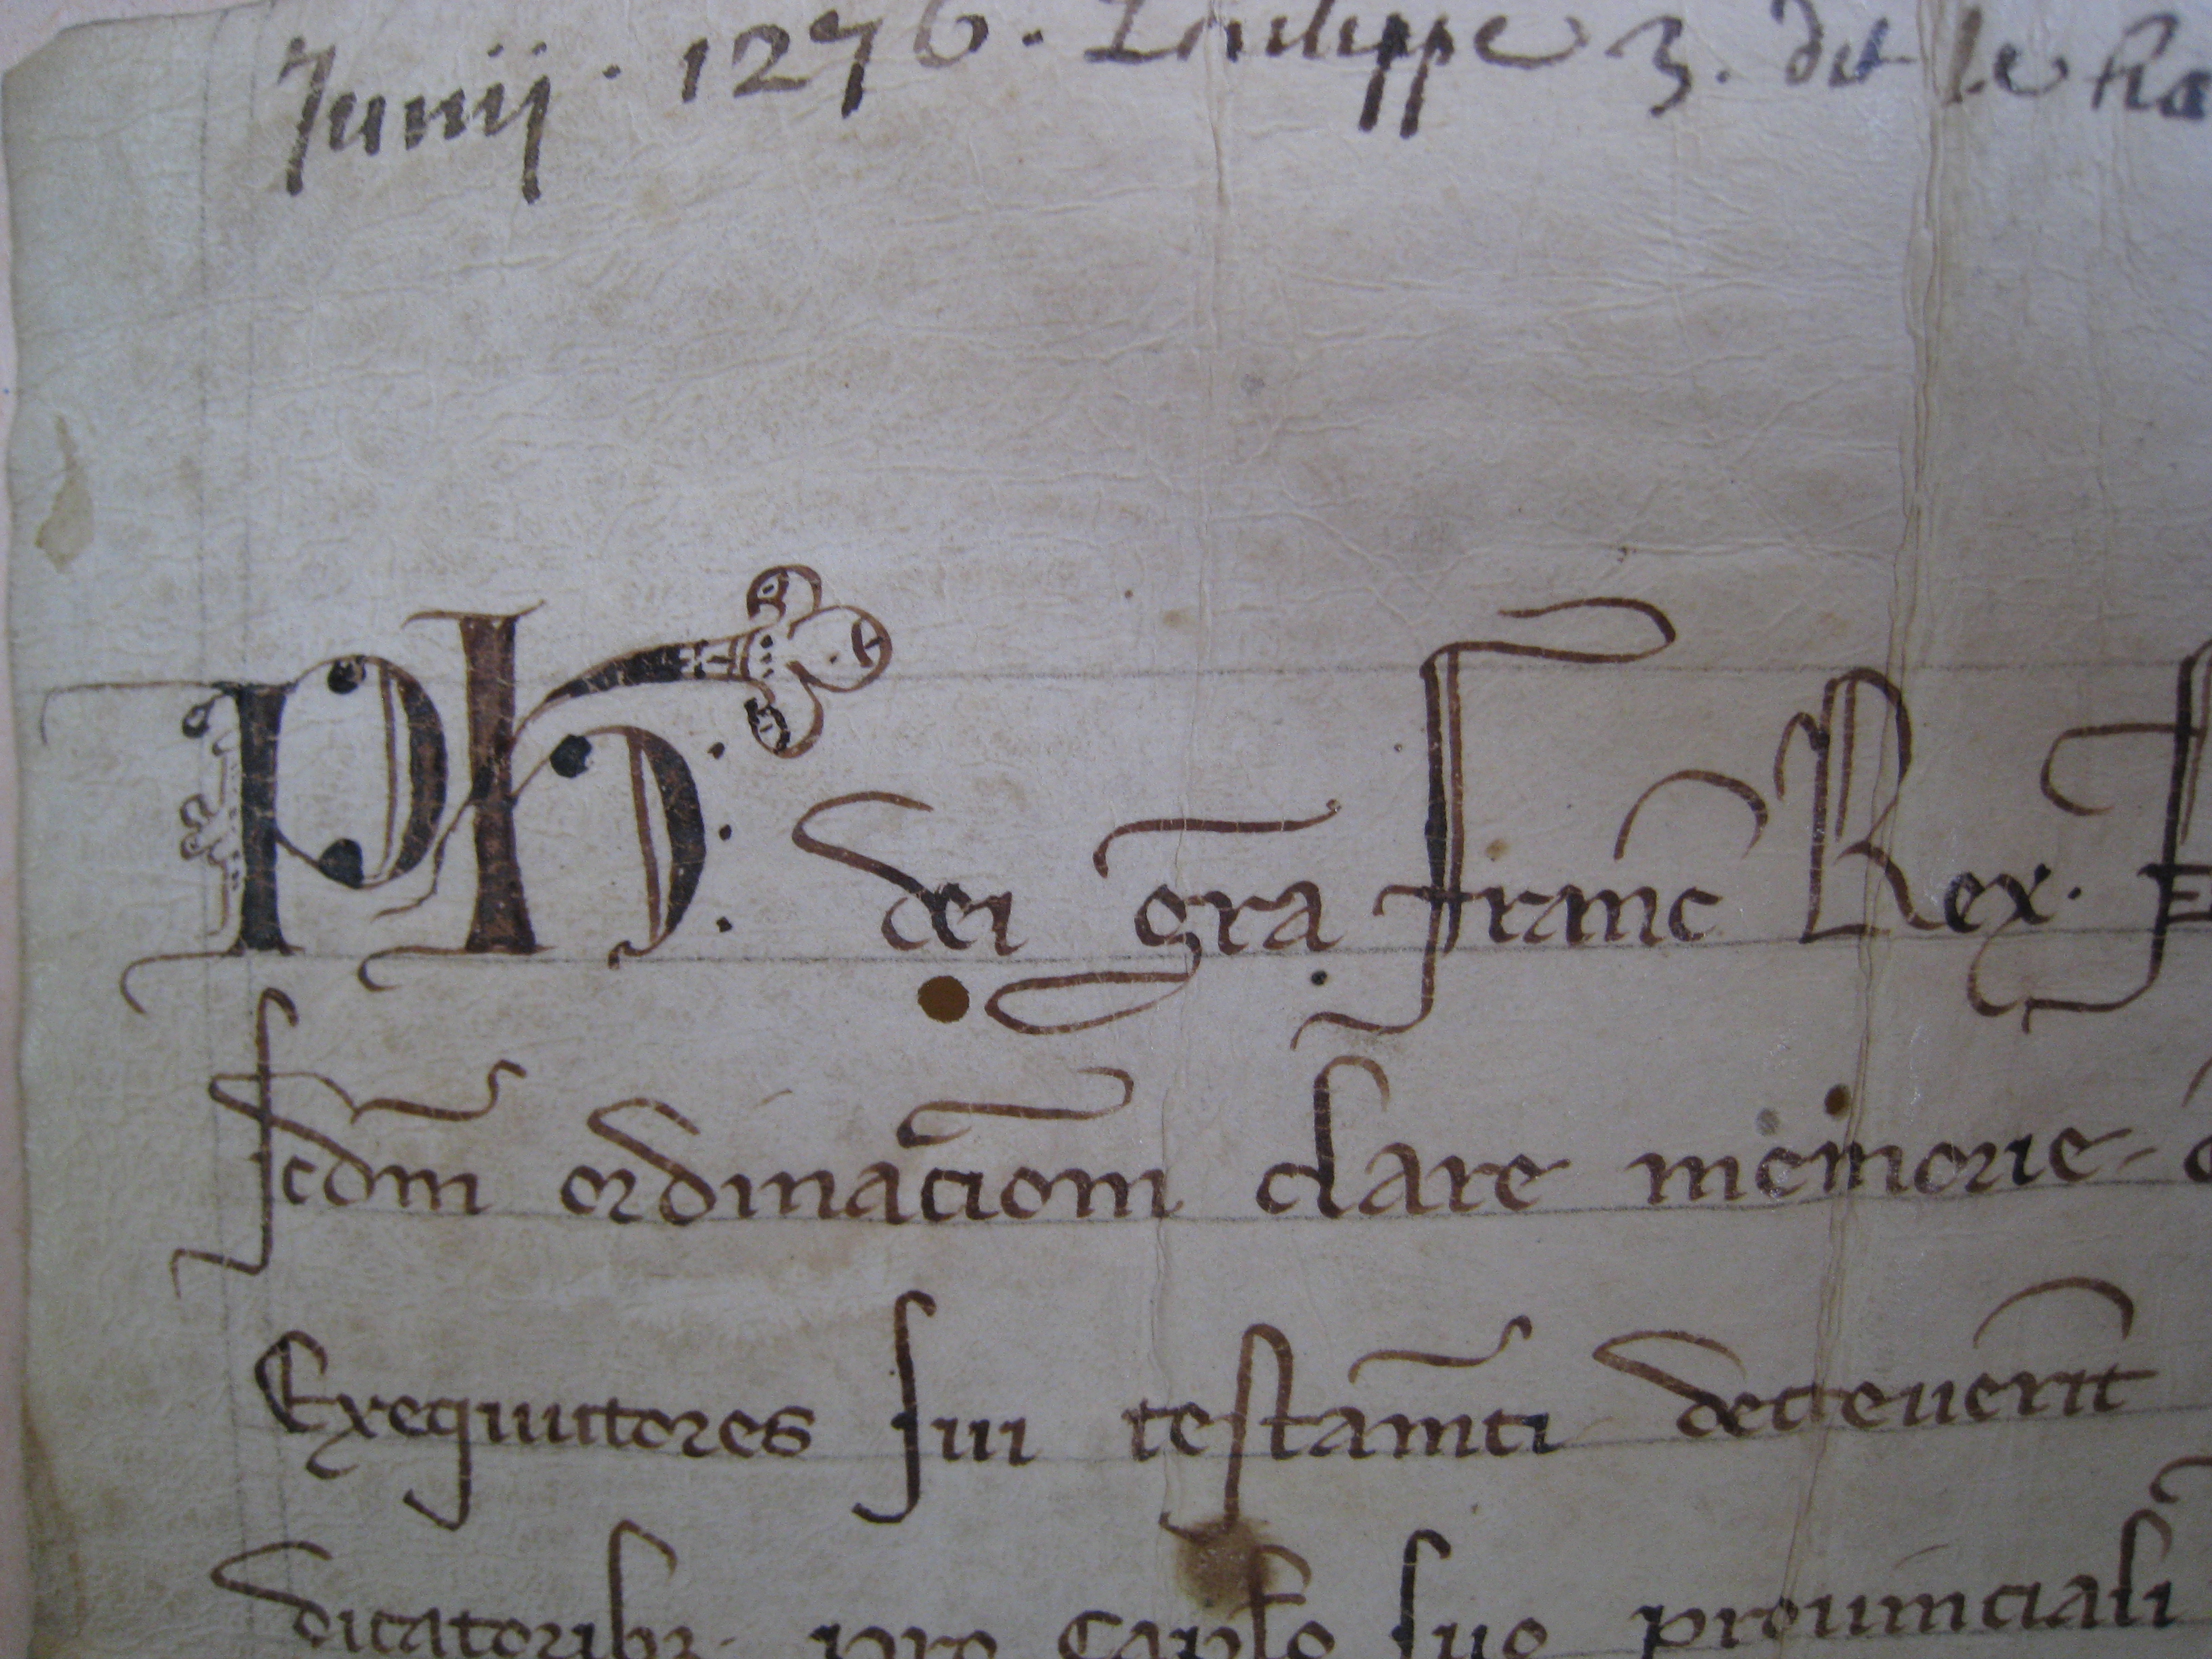 Junij. 1276. Philippe 3. dit le ha
Ph: dei gr̄a franc̄ Rex.
Scdm̄ ordinac̄iom clare memorie
Exequutores sui testam̄ti decreuerīt
dicatoribȝ. pro capl̄o suo prouinciali